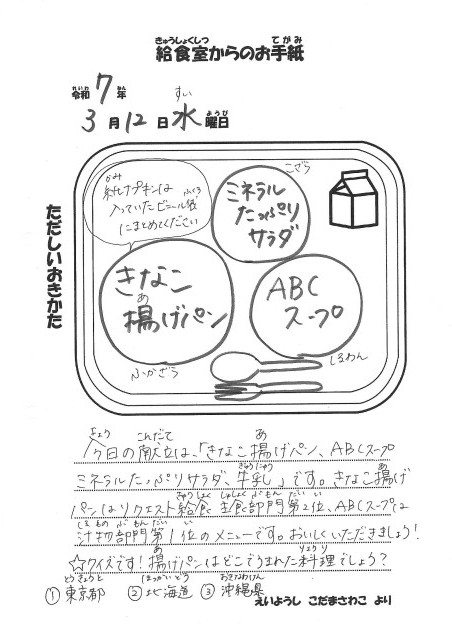 きゅうしょくしつ てがみ
給食室からのお手紙
れいわ ねん すい ようび
令和7年
3月12日水曜日
ただしいおきかた
かみ
紙ナプキンは ふくろ
入っていたビニール袋
にまとめてください
こざら
ミネラル
たっぷり
サラダ
きなこ
あ
揚げパン
ふかざら
ABC
スープ
しるわん
きょう こんだて あ
今日の献立は、「きなこ揚げパン、ABCスープ
ぎゅうにゅう あ
ミネラルたっぷりサラダ、牛乳」です。きなこ揚げ
きゅうしょく しゅしょくぶもんだい い
パンはリクエスト給食 主食部門第2位、ABCスープは
しるものぶもんだい い
汁物部門第1位のメニューです。おいしくいただきましょう!
あ りょうり
☆クイズです!揚げパンはどこでうまれた料理でしょう?
とうきょうと ほっかいどう おきなわけん
①東京都 ②北海道 ③沖縄県
えいようし こだまさわこ より